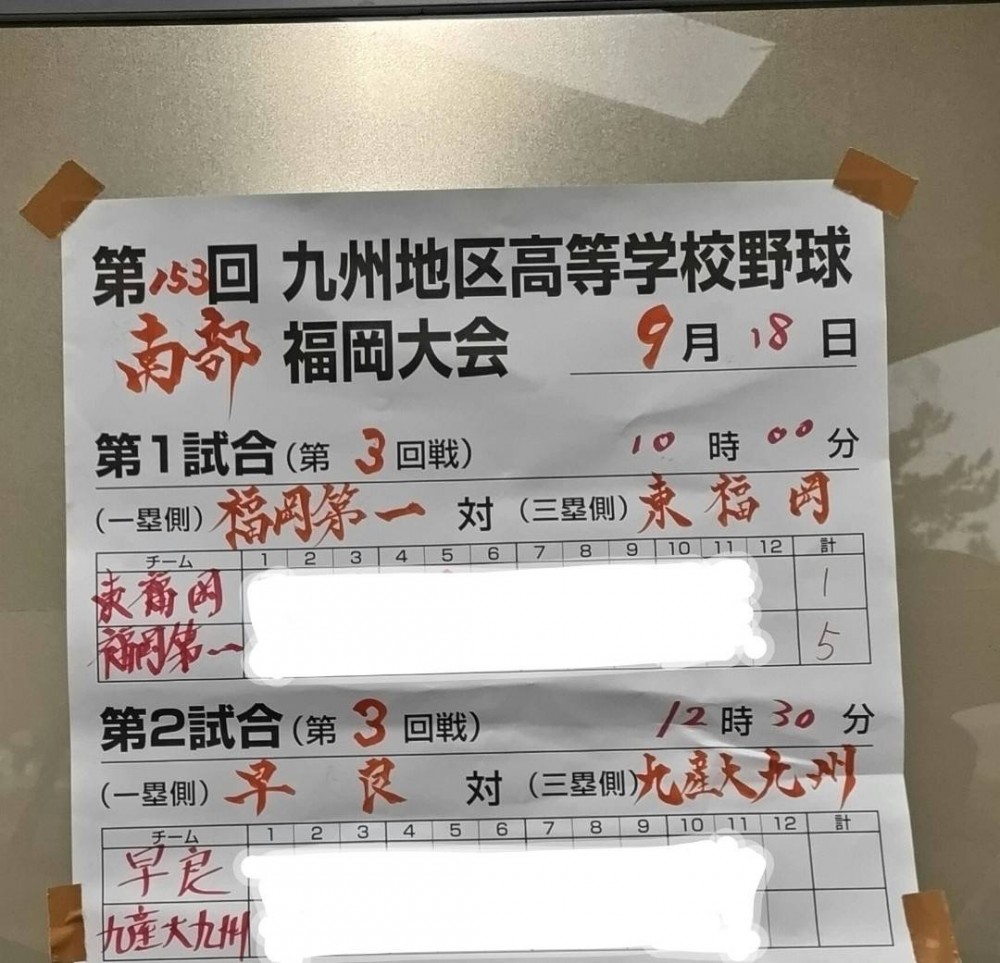 第153回 九州地区高等学校野球
南部 福岡大会 9月18日
第1試合(第3回戦) 10時00分
(一塁側)福岡第一 対 (三塁側)東福岡
チーム 1 2 3 4 5 6 7 8 9 10 11 12 計
東福岡 1
福岡第一 5
第2試合(第3回戦) 12時30分
(一塁側)早良 対 (三塁側)九産大九州
チーム 1 2 3 4 5 6 7 8 9 10 11 12 計
早良
九産大九州